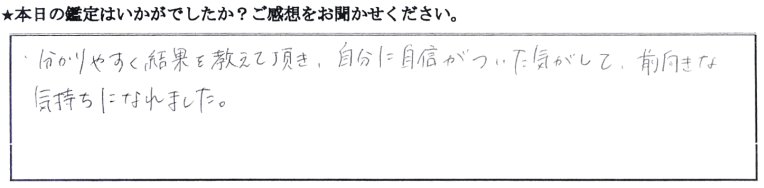 ★本日の鑑定はいかがでしたか？ご感想をお聞かせください。
・分かりやすく結果を教えて頂き、自分に自信がついた気がして、前向きな
気持ちになれました。